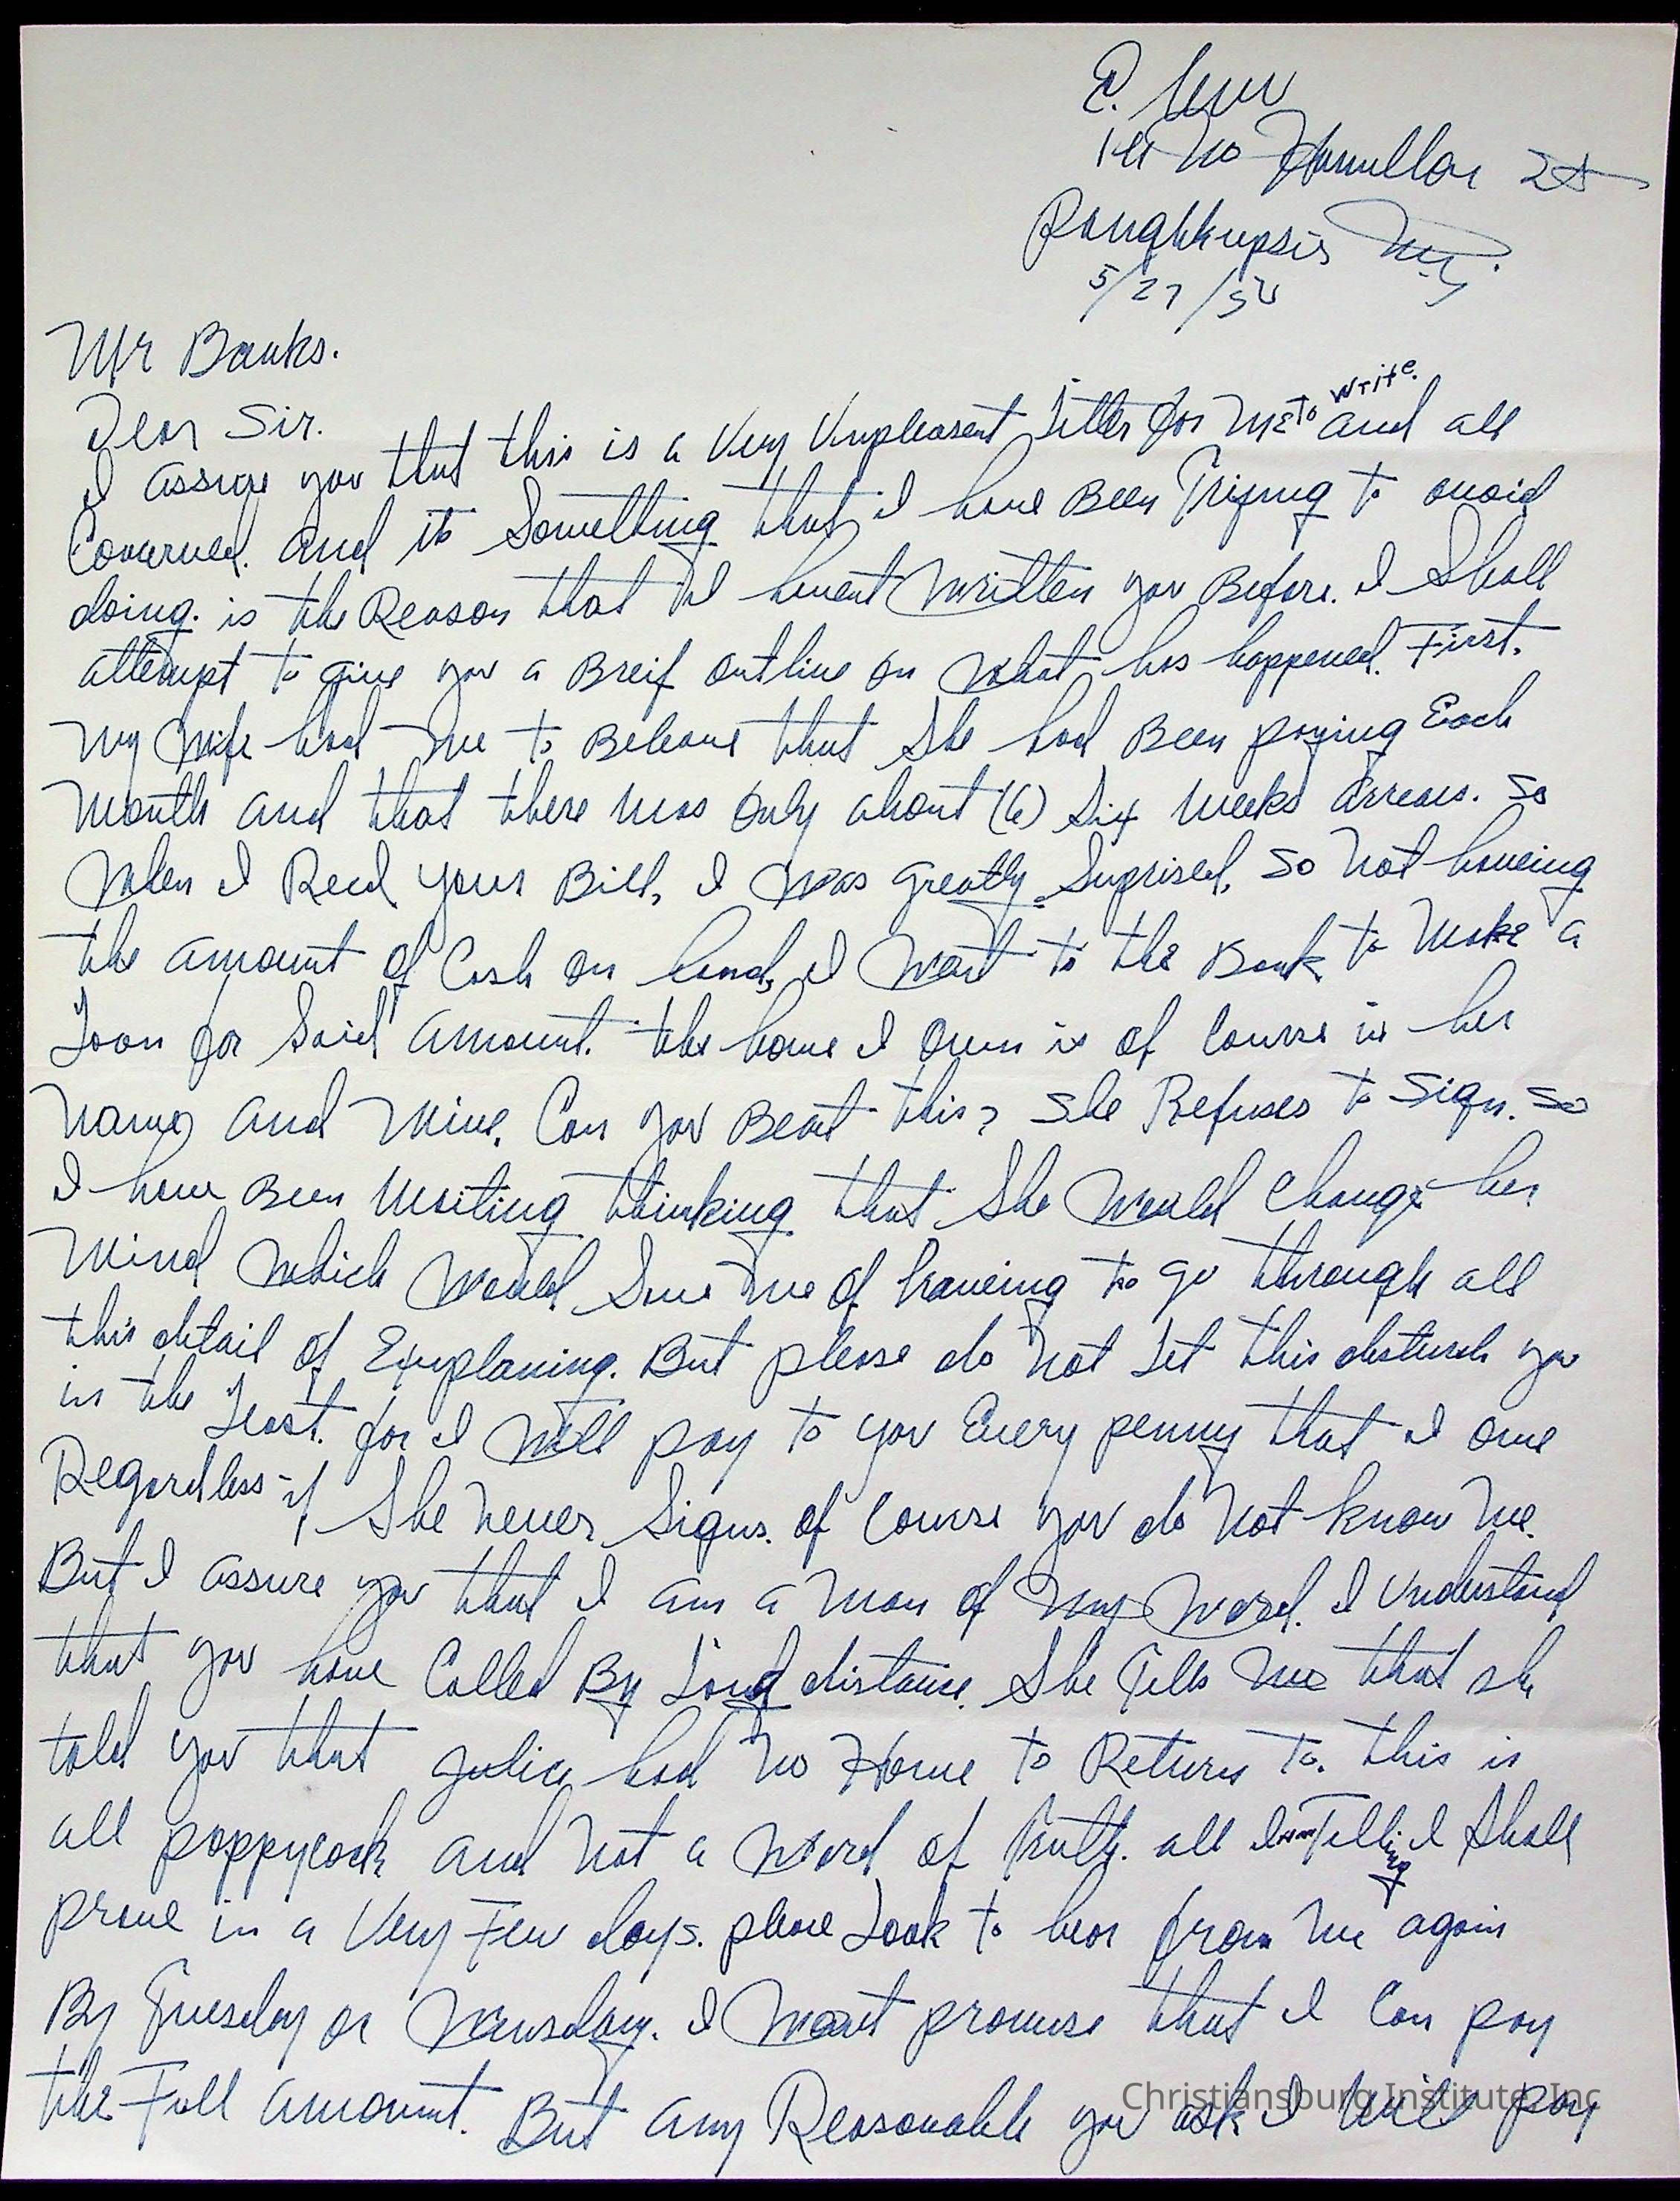 E.
No Hamilton St
Poughkeepsie N.Y.
5/27/50
Mr Banks.
Dear Sir.
I assure you that this is a Very Unpleasent Letter for Me to write. and all
Concerned. and its Something that I have Been Trying to avoid
doing. is the Reason that I havent Written you Before. I Shall
attempt to give you a Breif outline on what has happened. First.
My Wife had Me to Beleave that She had Been paying Each
Month and that there was Only about (6) Six Weeks Arrears. So
When I Recd your Bill, I was greatly Suprised, So Not haveing
the amount of Cash on hand, I Went to the Bank to Make a
Loan for Said Amount. the home I Own is of Course in her
Name and Mine, Can you Beat this? She Refuses to Sign. So
I have Been Waiting thinking that She Would Change her
Mind which Would Save Me of haveing to go through all
this detail of Explaning. But please do Not Let this disturb you
in the Least. for I Will pay to you Every penny that I owe
Regardless if She Never Signs. of Course you do Not know Me.
But I assure you that I am a Man of My Word. I Understand
that you have Called By Long distance. She Tells Me that she
told you that Julia had No Home to Return to. this is
all poppycock and Not a Word of Truth. all I am Telling I Shall
prove in a Very Few days. please Look to hear from Me again
By Tuesday or Wensday. I Wont promise that I Can pay
the Full Amount. But any Reasonable you ask I Will pay
Christiansburg Institute, Inc